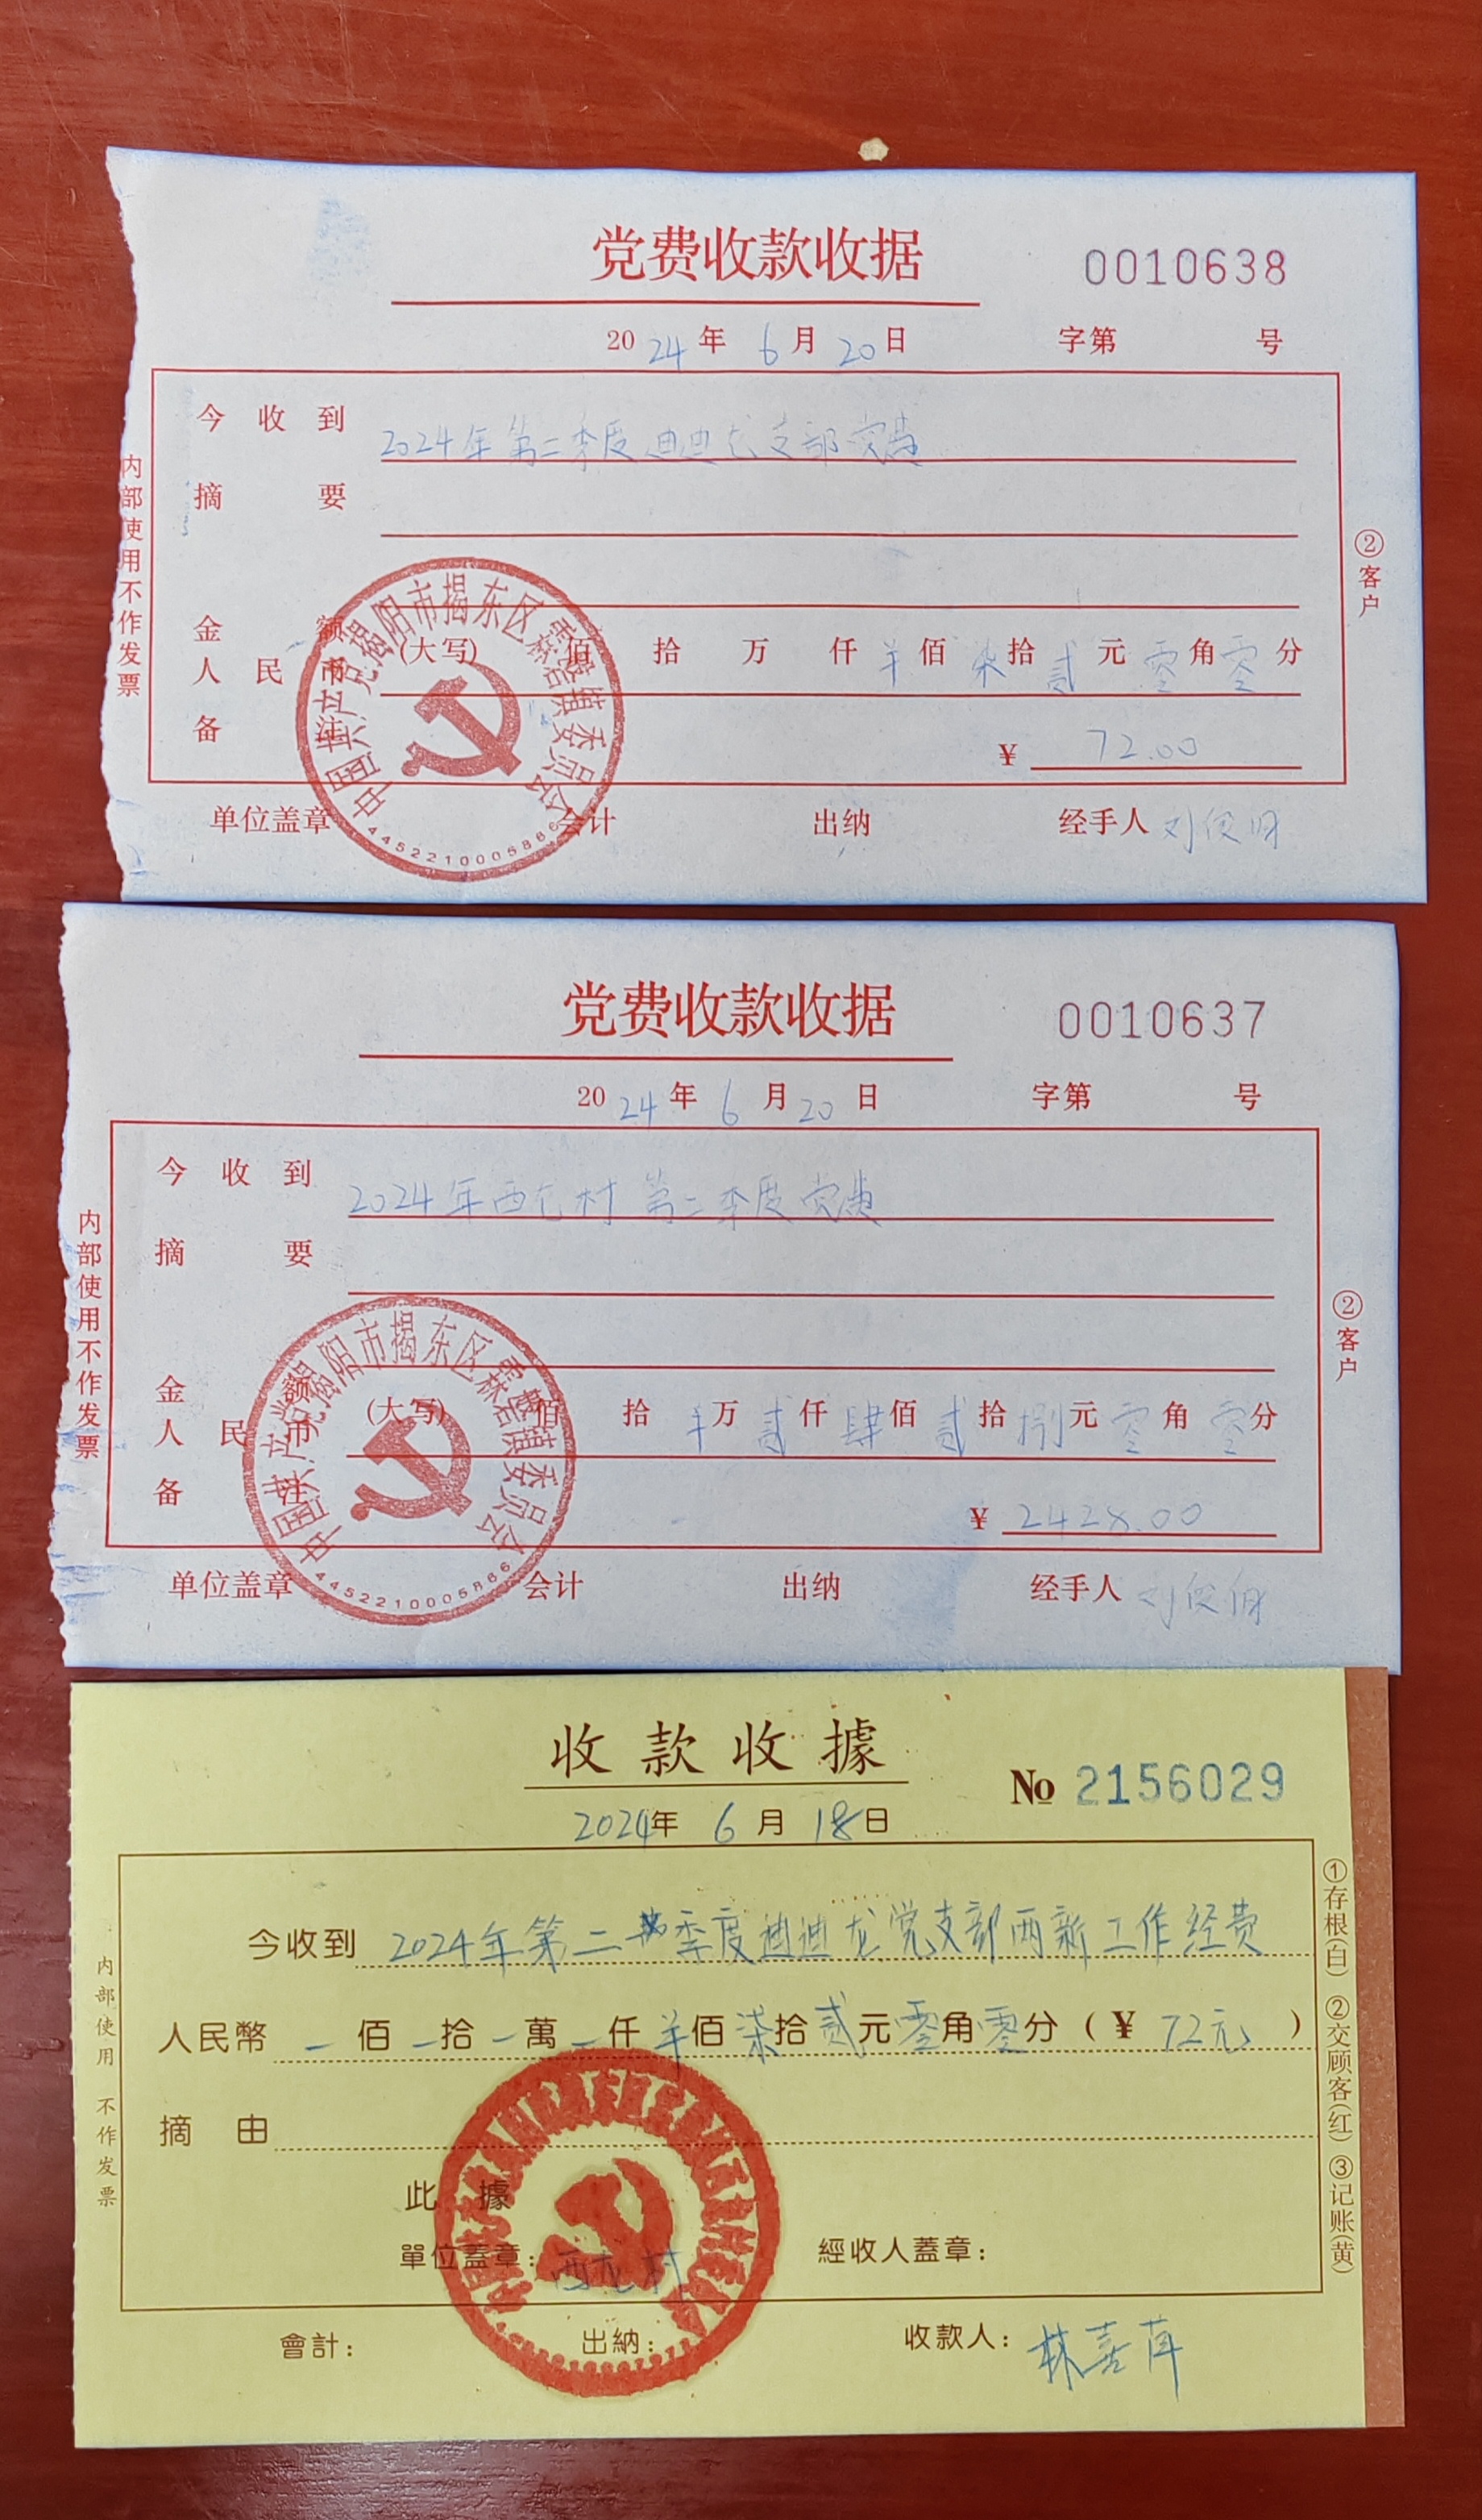 党费收款收据
0010638
2024年6月20日 字第 号
今收到 2024年第二季度迪迪龙支部党费
摘要
金额
人民币 (大写) 佰 拾 万 仟 羊佰柒拾贰元零角零分
备注 ¥ 72.00
单位盖章 会计 出纳 经手人 刘俊
内部使用不作发票
②客户
中国共产党揭阳市揭东区霖磐镇委员会
4452210005866
党费收款收据
0010637
2024年6月20日 字第 号
今收到 2024年西龙村第二季度党费
摘要
金额
人民币 (大写) 佰 拾 羊万贰仟肆佰贰拾捌元零角零分
备注 ¥ 2428.00
单位盖章 会计 出纳 经手人 刘俊
内部使用不作发票
②客户
中国共产党揭阳市揭东区霖磐镇委员会
4452210005866
收款收據
№ 2156029
2024年6月18日
今收到 2024年第二季度迪迪龙党支部两新工作经费
人民幣 一佰一拾一萬一仟羊佰柒拾贰元零角零分(¥ 72元)
摘由
此據
單位蓋章: 西龙村 經收人蓋章:
會計: 出納: 收款人: 林喜萍
内部使用 不作发票
①存根(白) ②交顾客(红) ③记账(黄)